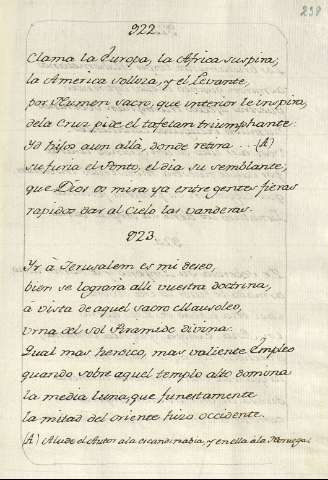 238
922.
Clama la Europa, la Africa suspira,
la America solloza, y el Levante,
por Numen sacro, que interior le inspira,
dela Cruz pide el tafetan triumphante.
Id hijos aun allà, donde retira ... (A)
su furia el Ponto, el dia su semblante,
que Dios os mira ya entre gentes fieras
rapidos dar al Cielo las vanderas.
923.
Yr à Jerusalem es mi deseo,
bien se lograrà alli vuestra doctrina,
à vista de aquel sacro Mausoleo,
Urna del sol Piramide divina.
Qual mas heroico, mas valiente Empleo
quando sobre aquel templo alto domina
la media luna, que funestamente
la mitad del oriente hizo occidente.
(A) Alude el Autor a la escandinabia, y en ella à la Noruega.